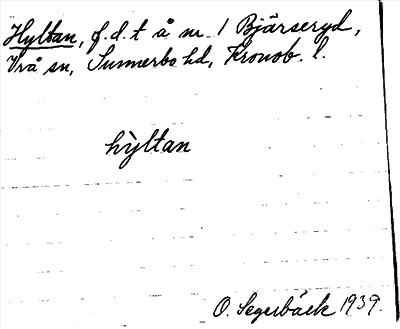 Hyltan, f.d. t å nr 1 Bjärseryd,
Vrå sn, Sunnerbo hd, Kronob. l.
hỳltan
O. Segerbäck 1939.